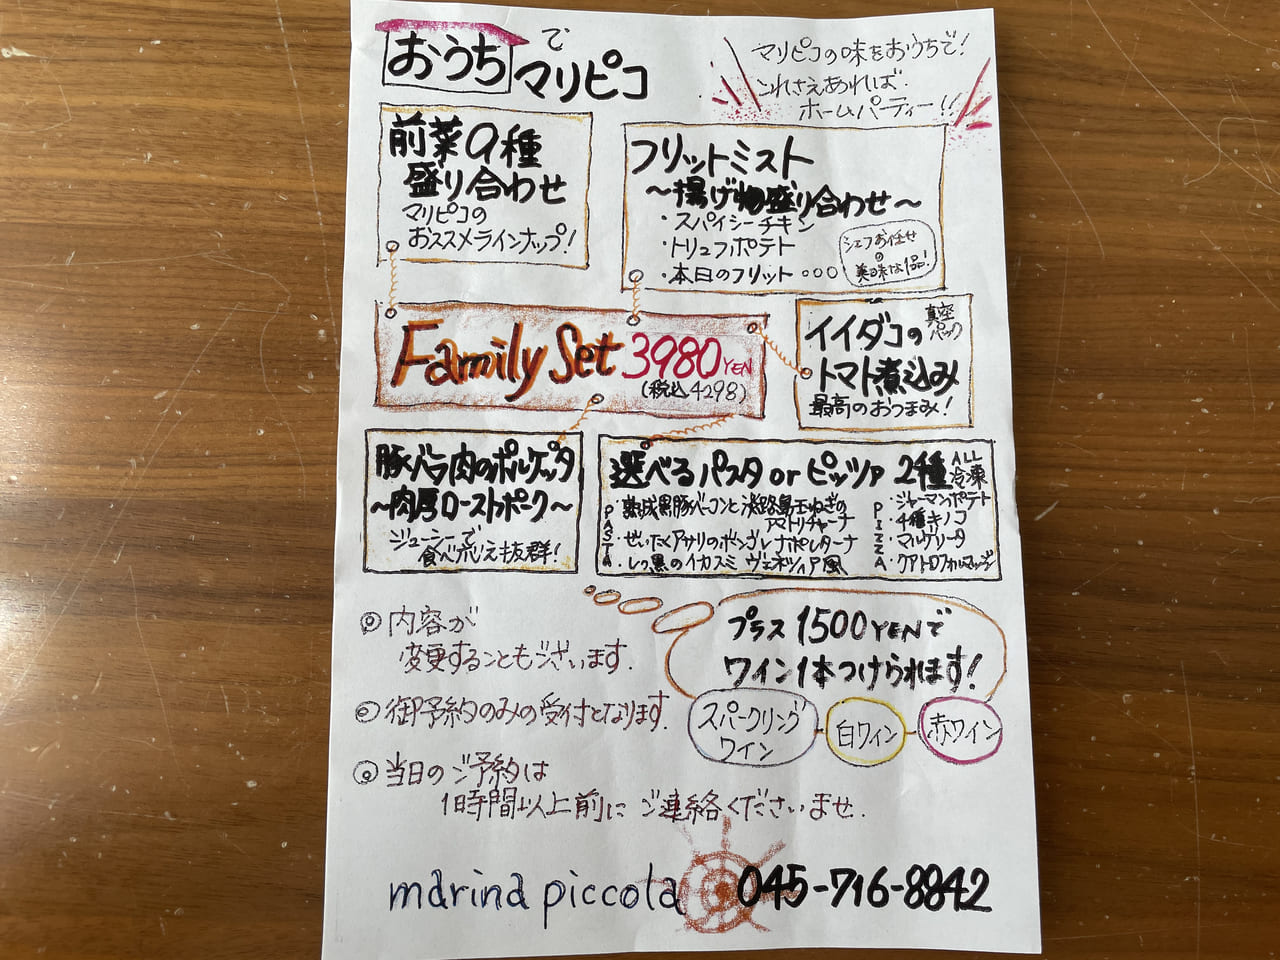 おうちで
マリピコ
マリピコの味をおうちで!
これさえあれば
ホームパーティー!!
前菜9種
盛り合わせ
マリピコの
おススメラインナップ!
フリットミスト
~揚げ物盛り合わせ~
・スパイシーチキン
・トリュフポテト
・本日のフリット…
シェフお任せ
の
美味な1品!
Family Set 3980YEN
(税込4298)
イイダコの
真空
パック
トマト煮込み
最高のおつまみ!
豚バラ肉のポルケッタ
~肉厚ローストポーク~
ジューシーで
食べ応え抜群!
選べるパスタ or ピッツァ 2種
ALL
冷凍
PASTA
・熟成黒豚ベーコンと淡路島玉ねぎの
アマトリチャーナ
・ぜいたくアサリのボンゴレナポレターナ
・まっ黒のイカスミ ヴェネツィア風
PIZZA
・ジャーマンポテト
・4種キノコ
・マルゲリータ
・クアトロフォルマッジ
プラス 1500YENで
ワイン1本つけられます!
スパークリング
ワイン
白ワイン
赤ワイン
◎内容が
変更することもございます.
◎御予約のみの受付となります.
◎当日のご予約は
1時間以上前にご連絡くださいませ.
marina piccola 045-716-8842